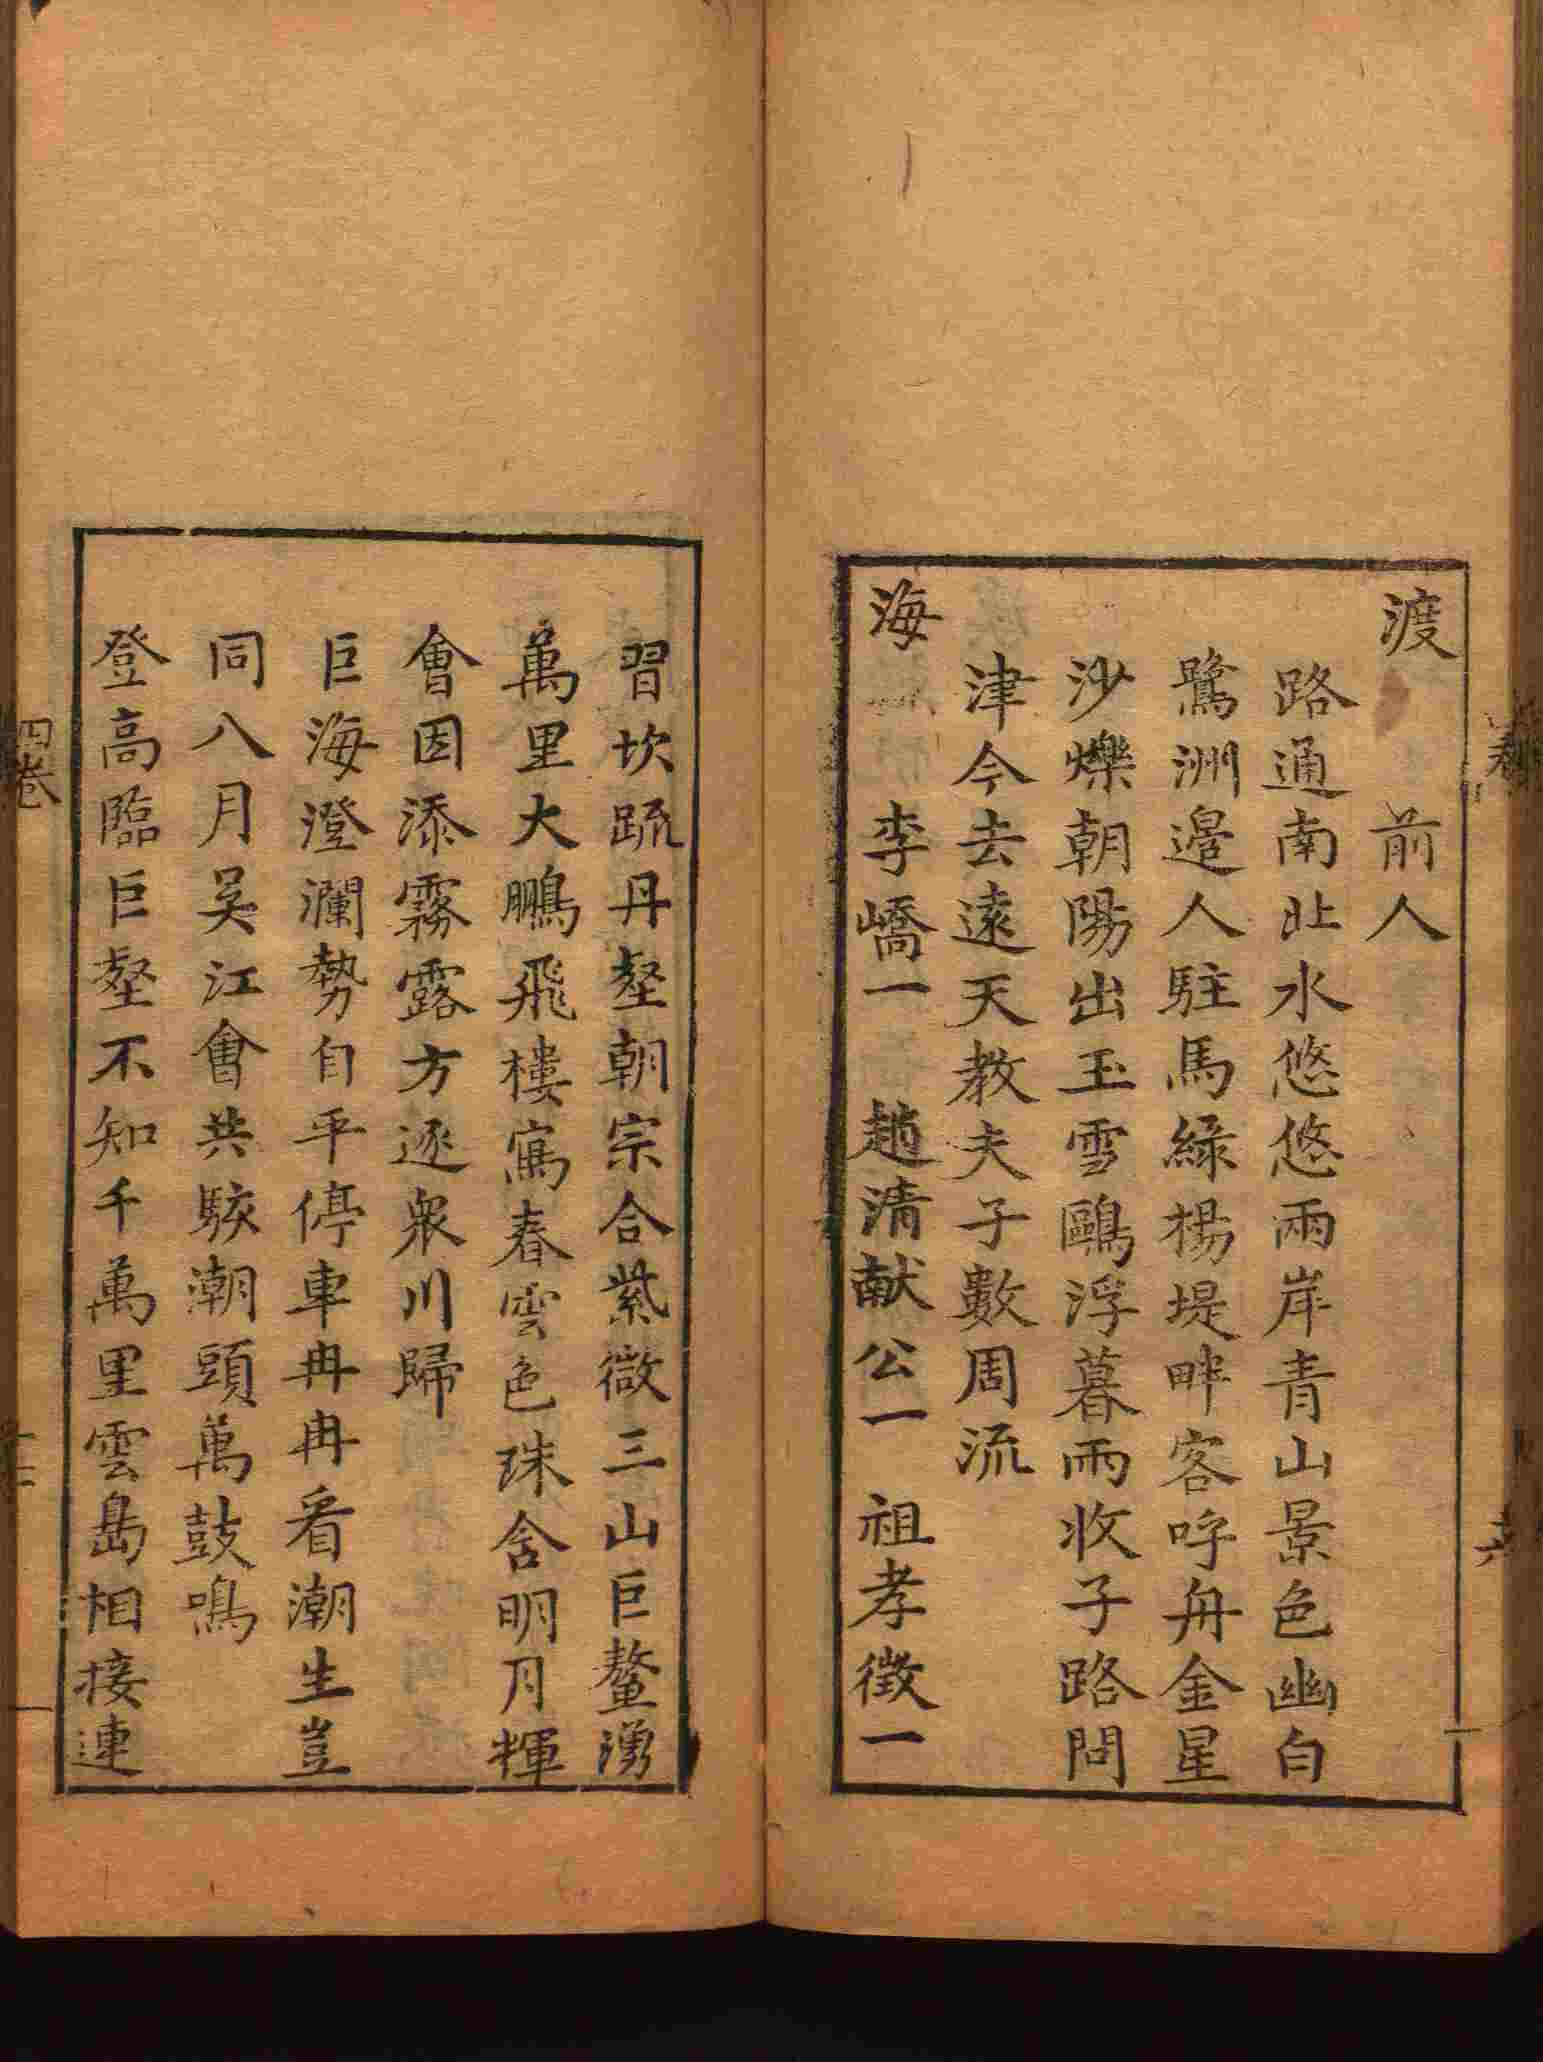 渡　前人
路通南北水悠悠兩岸青山景色幽白
鷺洲邉人駐馬綠楊堤畔客呼舟金星
沙爍朝陽出玉雪鷗浮暮雨收子路問
津今去遠天教夫子數周流
海　李嶠一　趙清献公一　祖孝徴一
習坎疏丹壑朝宗合紫微三山巨鰲湧
萬里大鵬飛樓寫春雲色珠含明月輝
會因添霧露方逐衆川歸
巨海澄瀾勢自平停車冉冉看潮生豈
同八月吴江會共駭潮頭萬鼓鳴
登高臨巨壑不知千萬里雲島相接連
四卷
十二